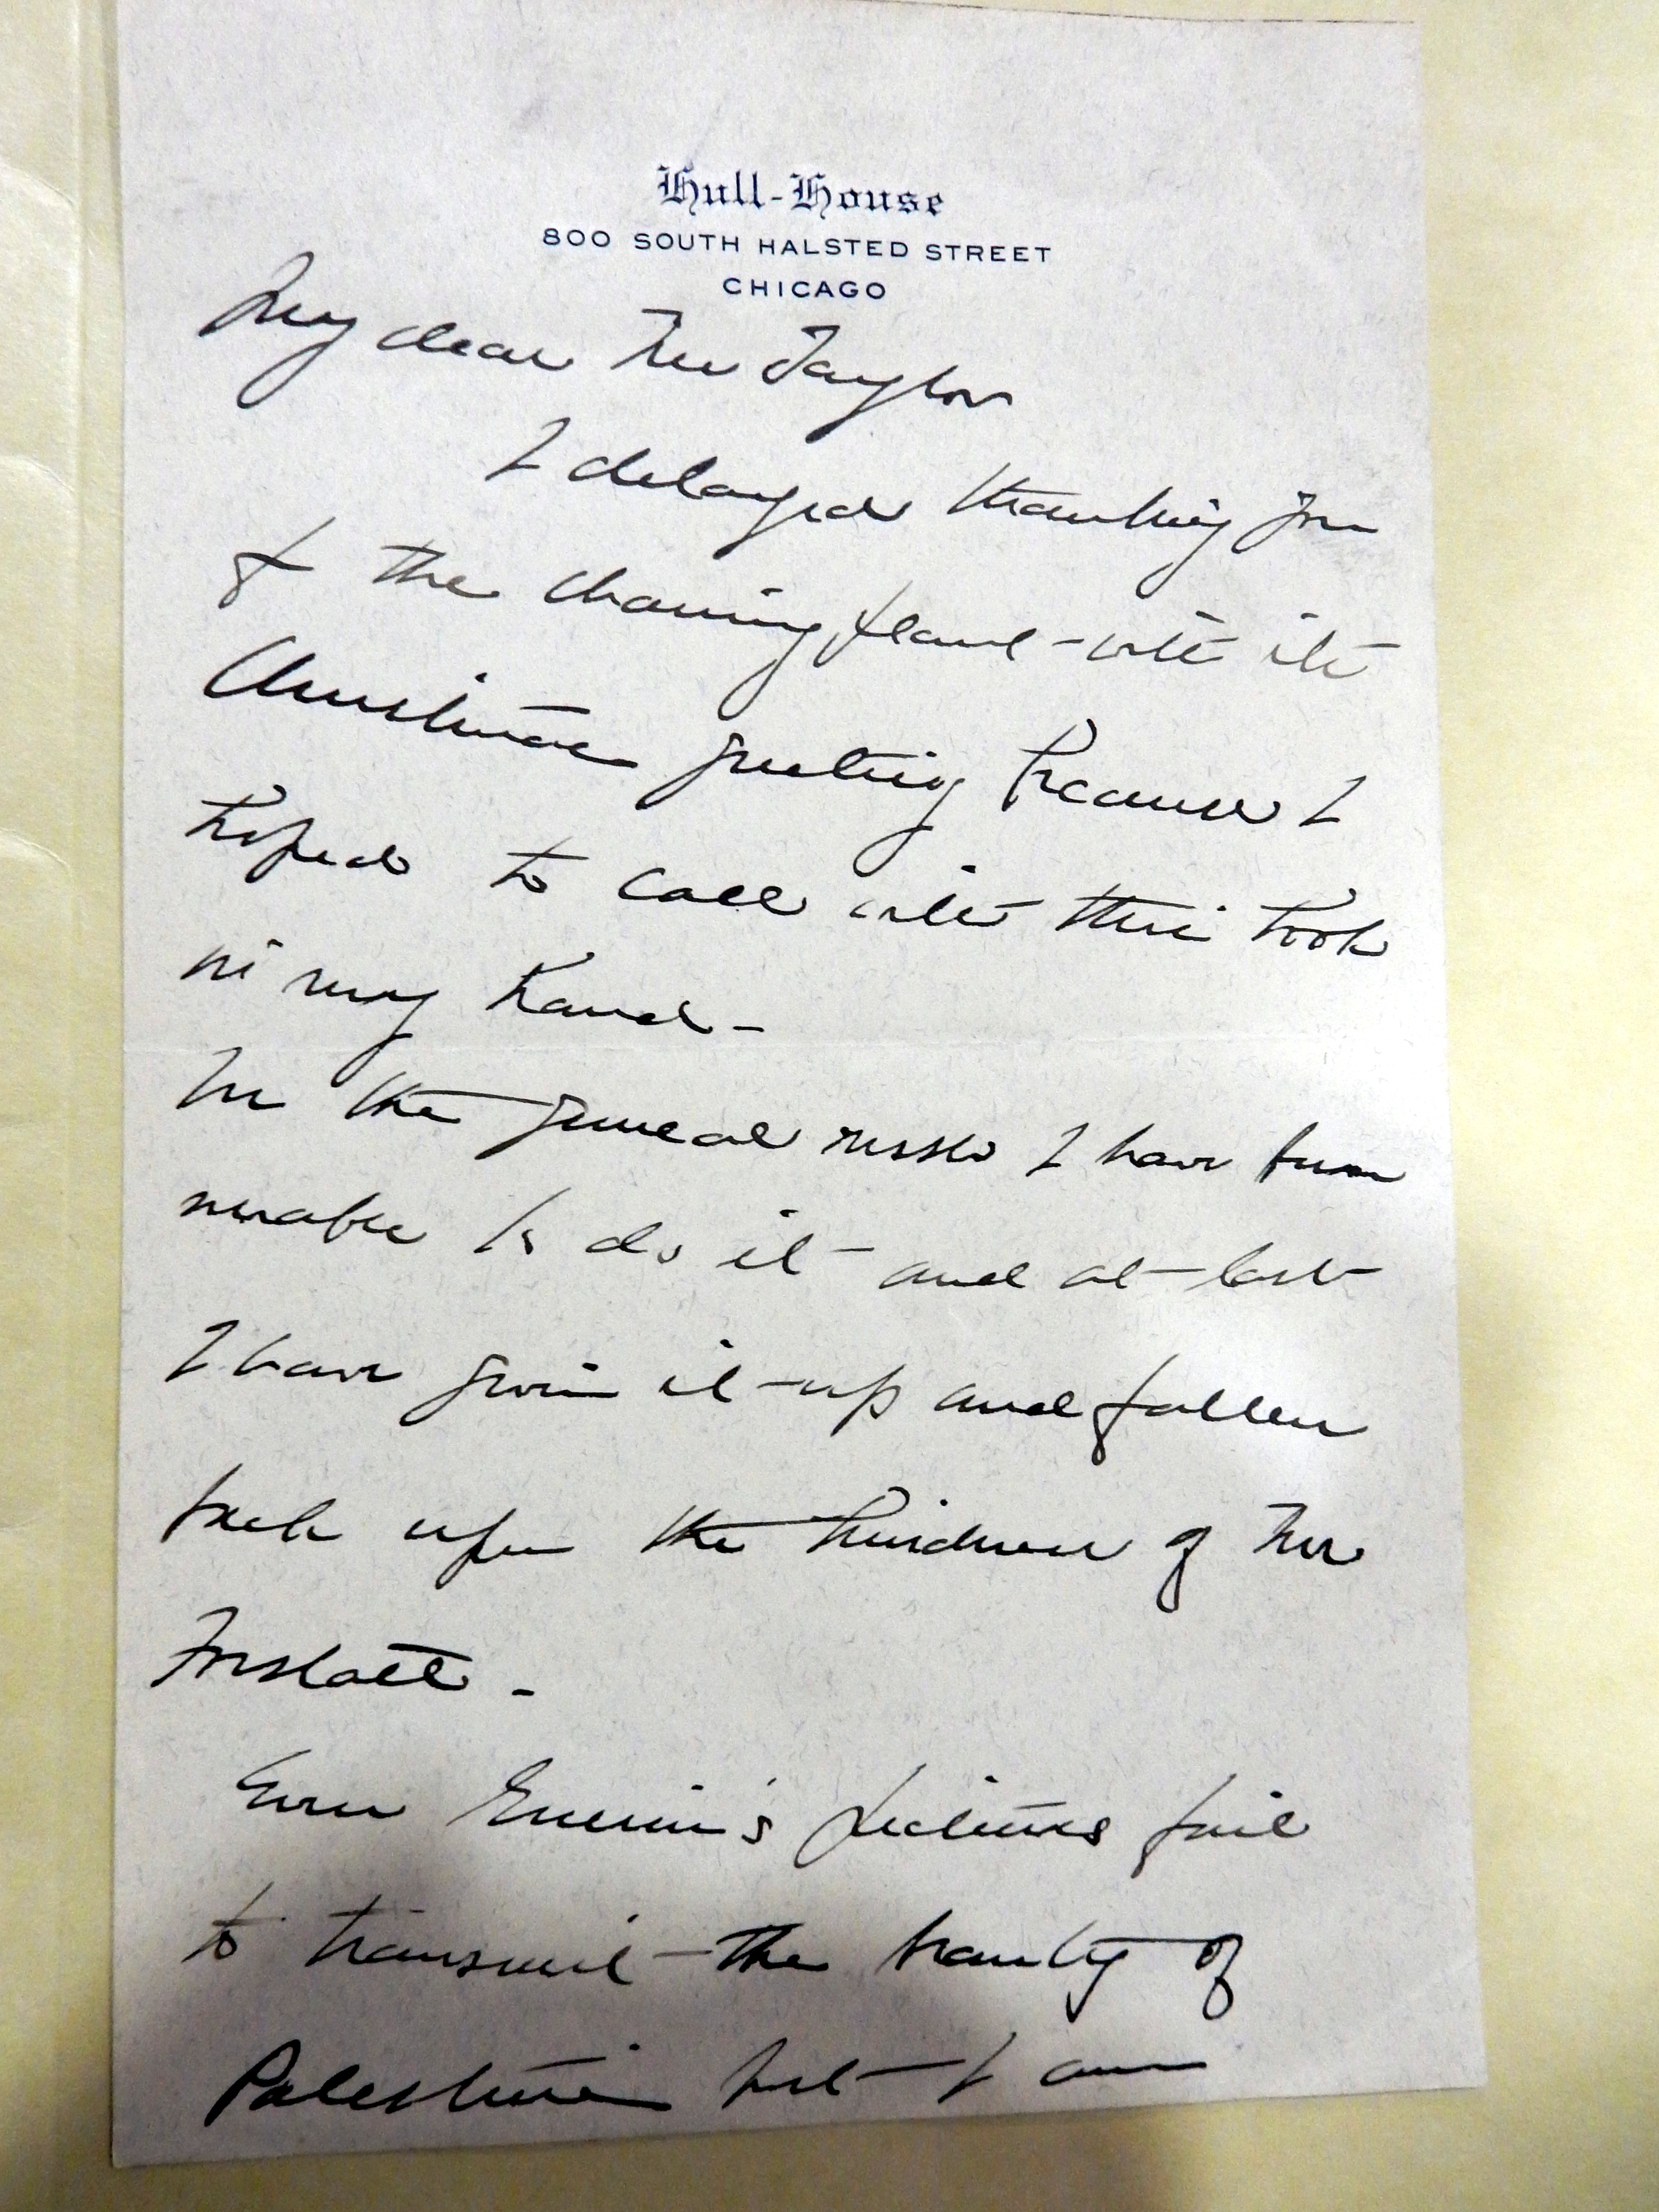 Hull-House
800 SOUTH HALSTED STREET
CHICAGO
My dear Mrs Taylor
I delayed thanking you
for the charming plant - with its
Christmas greeting because I
hoped to call with this book
in my hand -
In the general rush I have been
unable to do it and at last
I have given it up and fallen
back upon the kindness of Mrs
Even pictures fail
to transmit the beauty of
Palestine but I am